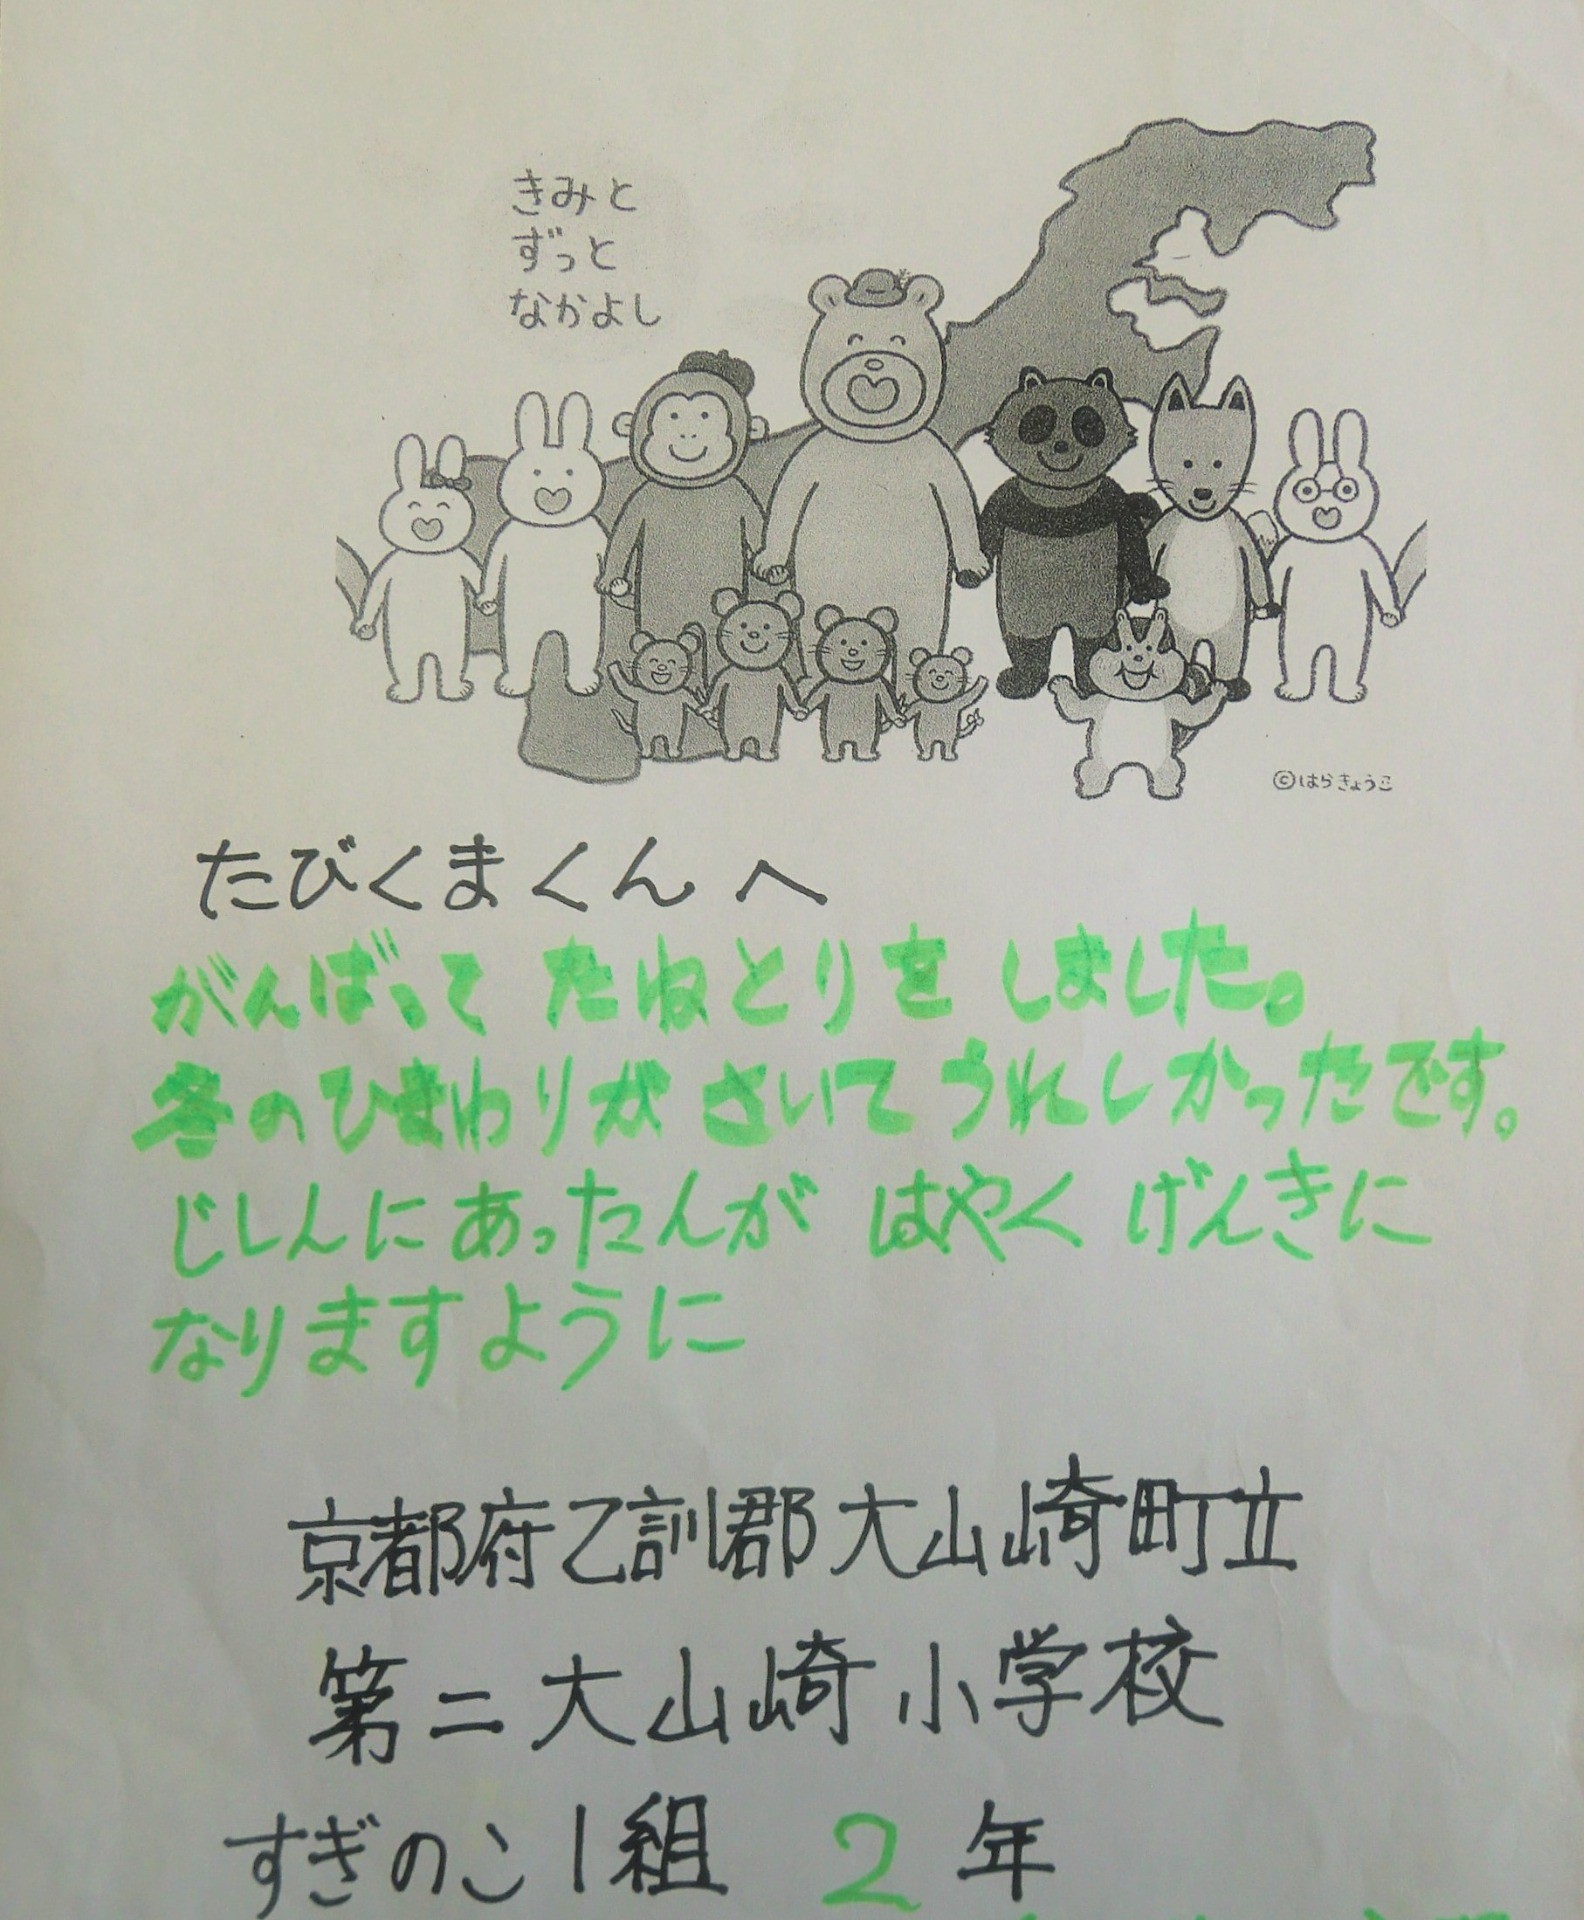 きみと
ずっと
なかよし
©はらきょうこ
たびくまくんへ
がんばって たねとりを しました。
冬のひまわりが さいて うれしかったです。
じしんにあったんが はやく げんきに
なりますように
京都府乙訓郡大山崎町立
第二大山崎小学校
すぎのこ1組 2年